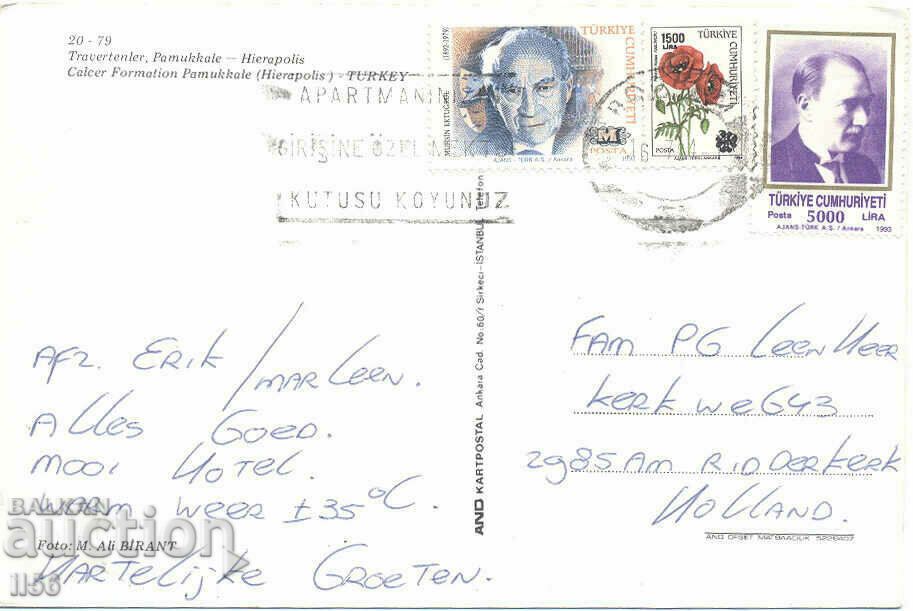 20 - 79
Travertenler, Pamukkale — Hierapolis
Calcer Formation Pamukkale (Hierapolis) - TURKEY
APARTMAN
GİRİŞİNE ÖZEL
KUTUSU KOYUNUZ
(1892-1979)
MUHSİN ERTUĞRUL
TÜRKİYE
CUMHURİYETİ
POSTA
AJANS - TÜRK A.Ş. / Ankara
1500
LİRA
TÜRKİYE
CUMHURİYETİ
POSTA
TÜRKİYE CUMHURİYETİ
Posta 5000 LİRA
AJANS-TÜRK A.Ş. / Ankara 1993
AFZ. ERIK / MARLEEN.
ALLES GOED.
MOOI HOTEL.
WARM WEER ±35°C.
HARTELIJKE GROETEN.
Foto: M. Ali BİRANT
AND KARTPOSTAL Ankara Cad. No: 60/1 Sirkeci-İSTANBUL Telefon
FAM PG LEENHEER
KERKWEG 43
2985AM RIDDERKERK
HOLLAND.
AND OFSET MATBAACILIK 5226407
BALKAN
auction
1156